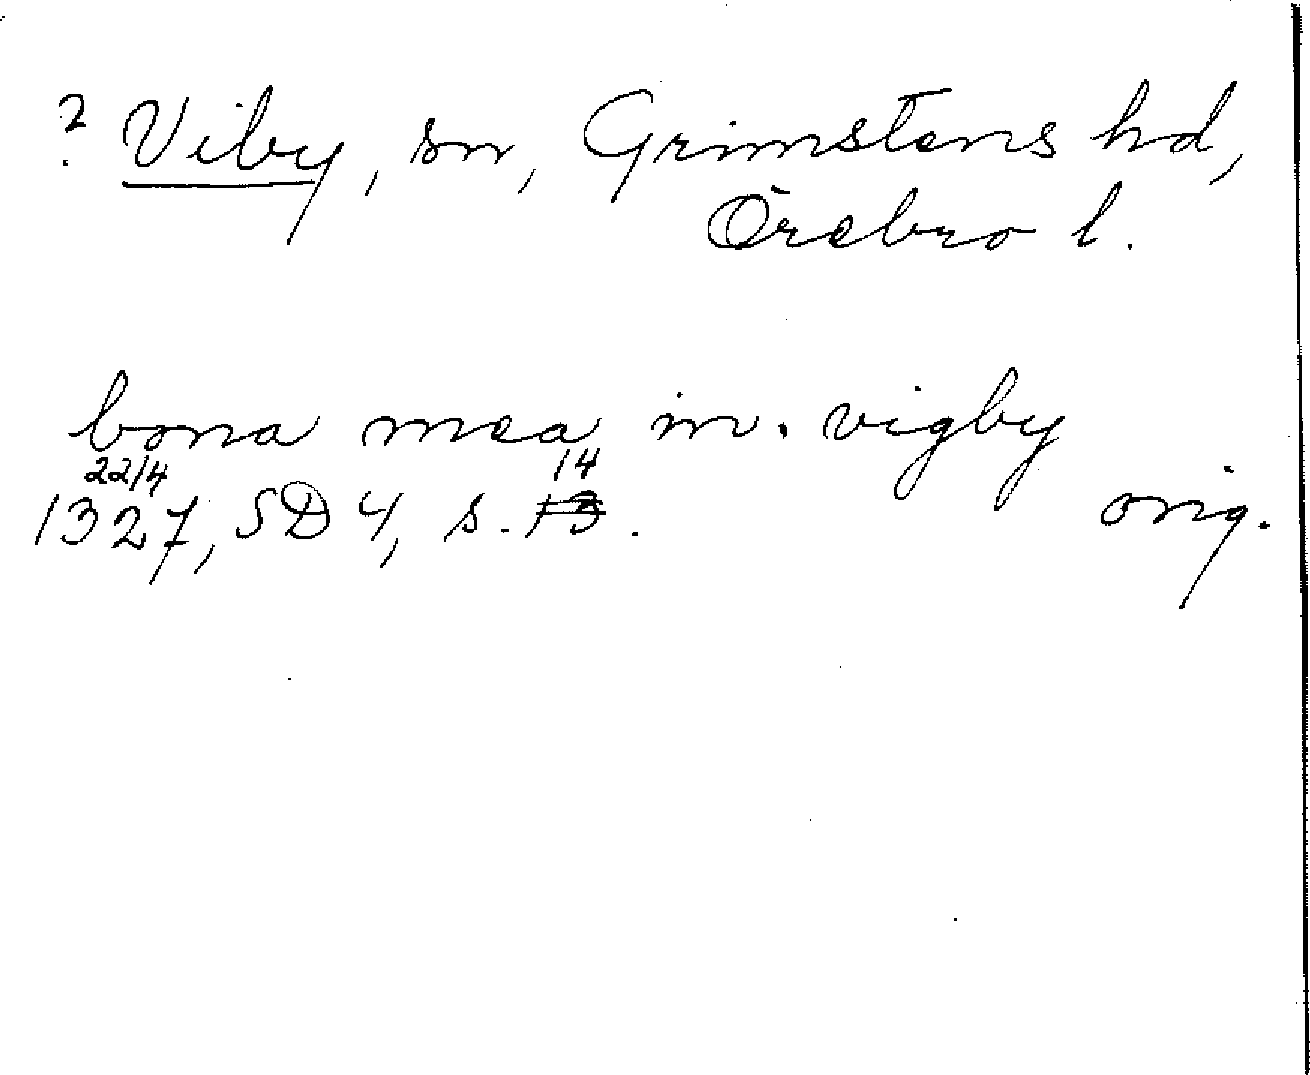 ? Viby, sn, Grimstens hd,
Örebro l.
bona mea in. vigby
22/4 14
1327, SD 4, s. 13. orig.